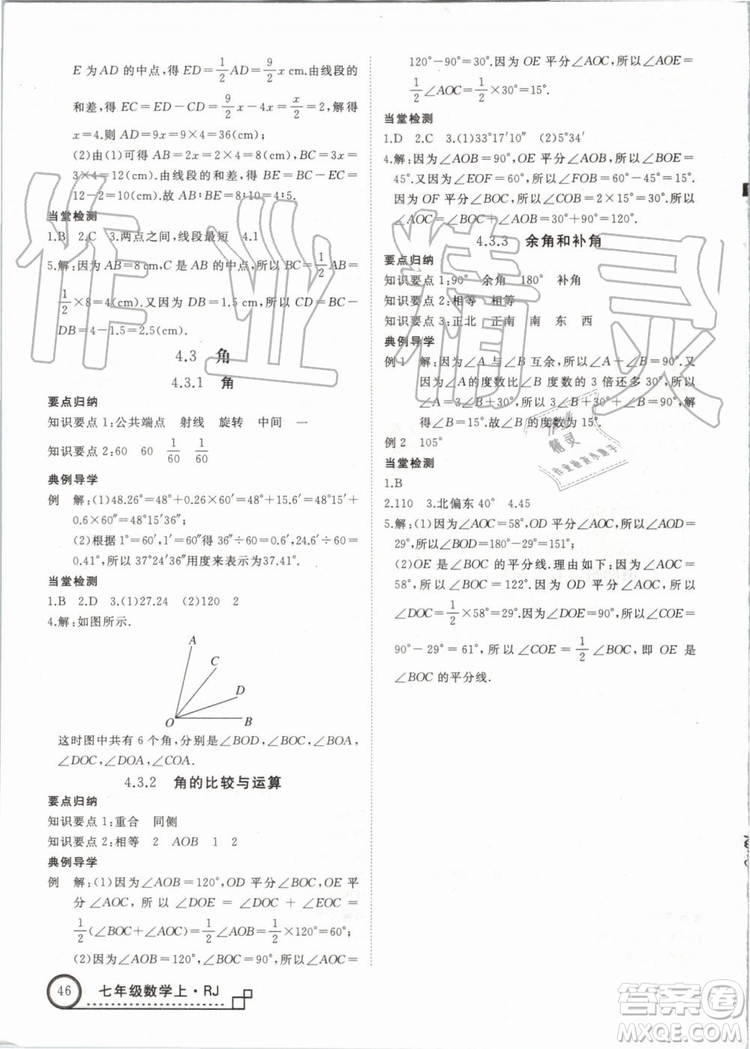 E 为 AD 的中点,得 ED=1/2AD=9/2x cm.由线段的
和差,得 EC=ED-CD=9/2x-4x=x/2=2,解得
x=4.所以 AD=9x=9×4=36(cm);
(2)由(1)得 AB=2x=2×4=8(cm),BC=3x=
3×4=12(cm).由线段的和差,得 BE=BC-CE=
12-2=10(cm).故 AB:BE=8:10=4:5.
当堂检测
1.B 2.C 3.两点之间,线段最短 4.1
5.解:因为 AB=8 cm,C 是 AB 的中点,所以 BC=
1/2×8=4(cm).因为 DB=1.5 cm,所以 CD=CB-
DB=4-1.5=2.5(cm).
4.3 角
4.3.1 角
要点归纳
知识要点 1:公共端点 射线 旋转 中间 一
知识要点 2:60 60 1/60 1/60
典例导学
例 解:(1)48.26°=48°+0.26×60′=48°+15′+
0.6×60″=48°15′36″;
(2)根据 1°=60′,1′=60″得 36″=0.6′,24.6′=
0.41°,所以 37°24′36″用度来表示为37.41°.
当堂检测
1.B 2.D 3.(1)27.24 (2)120 2
4.解:如图所示.
A
C
D
O B
这时图中共有 6 个角,分别是∠BOD,∠BOC,∠BOA,
∠DOC,∠DOA,∠COA.
4.3.2 角的比较与运算
要点归纳
知识要点 1:重合 同侧
知识要点 2:相等 2 AOB 1 2
典例导学
例 解:(1)因为∠AOB=120°,OD 平分∠BOC,OE 平
分∠AOC,所以∠DOE=∠DOC+∠EOC=
1/2(∠BOC+∠AOC)=1/2∠AOB=1/2×120°=60°;
(2)因为∠AOB=120°,∠BOC=90°,所以∠AOC=
120°-90°=30°.因为 OE 平分∠AOC,所以∠AOE=
1/2∠AOC=1/2×30°=15°.
当堂检测
1.D 2.C 3.(1)33°17′10″ (2)5°34′
4.解:因为∠AOB=90°,OE 平分∠AOB,所以∠BOE=
45°.又因为∠EOF=60°,所以∠FOB=60°-45°=15°.
因为 OF 平分∠BOC,所以∠COB=2×15°=30°,所以
∠AOC=∠BOC+∠AOB=30°+90°=120°.
4.3.3 余角和补角
要点归纳
知识要点 1:90° 余角 180° 补角
知识要点 2:相等 相等
知识要点 3:正北 正南 南 东 西
典例导学
例 1 解:因为∠A 与∠B 互余,所以∠A+∠B=90°.又
因为∠A的度数比∠B 度数的 3 倍还多 30°,所
以∠A=3∠B+30°,所以 3∠B+30°+∠B=90°,解得
∠B=15°.故∠B 的度数为 15°.
例 2 105°
当堂检测
1.B
2.110 3.北偏东 40° 4.45
5.解:(1)因为∠AOC=58°,OD 平分∠AOC,所以∠AOD=
29°,所以∠BOD=180°-29°=151°;
(2)OE 是∠BOC 的平分线.理由如下:因为∠AOC=
58°,所以∠BOC=122°.因为 OD 平分∠AOC,所以
∠DOC=1/2×58°=29°.因为∠DOE=90°,所以∠COE=
90°-29°=61°,所以∠COE=1/2∠BOC,即 OE 是
∠BOC 的平分线.
46 七年级数学上·RJ
作业精灵
答案圈
MXQE.COM